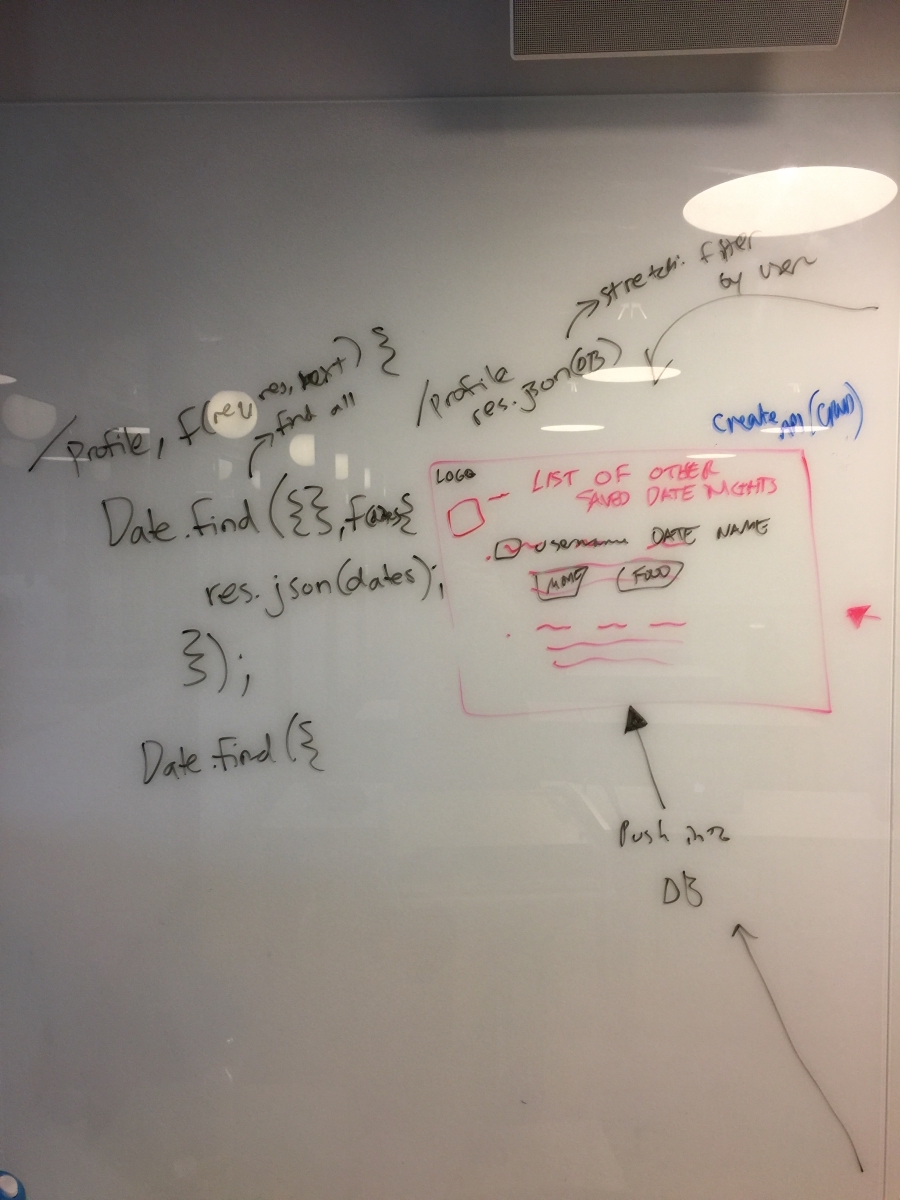 /profile, f(req, res, next) {
find all
Date.find({}, f(dates{
res.json(dates);
});
Date.find({
stretch: filter
by user
/profile
res.json(DB)
Create API (CRUD)
LOGO
LIST OF OTHER
SAVED DATE NIGHTS
username DATE NAME
FOOD
Push into
DB